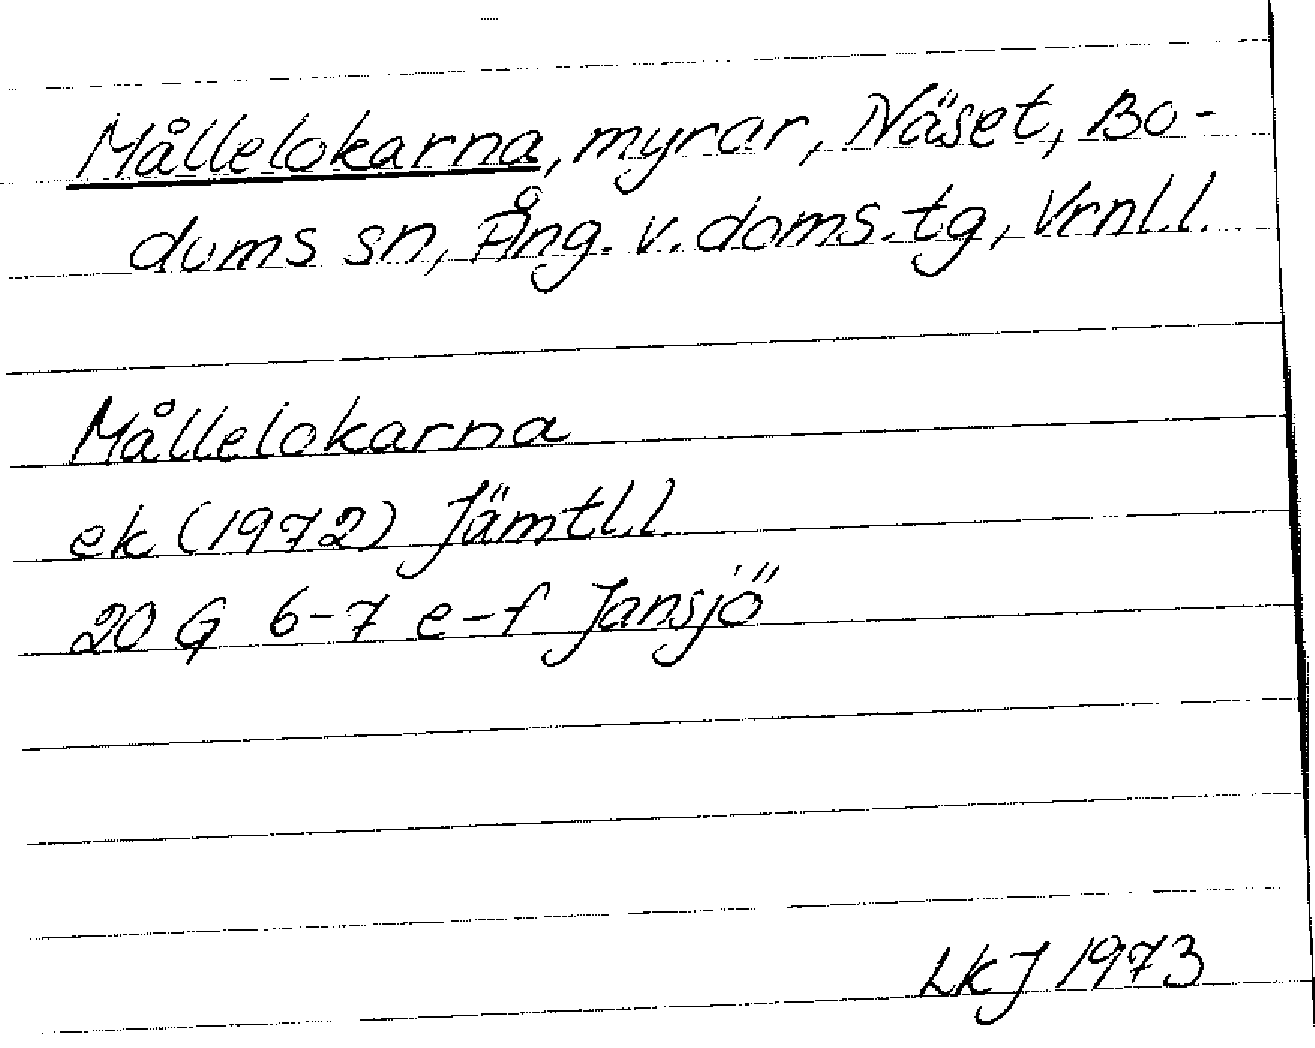 Mållelokarna, myrar, Näset, Bo-
dums sn, Ång. v. doms. tg, Vrnl.l.
Mållelokarna
ek (1972) Jämtl.l
20 G 6-7 e-f Jansjö
LKJ 1973